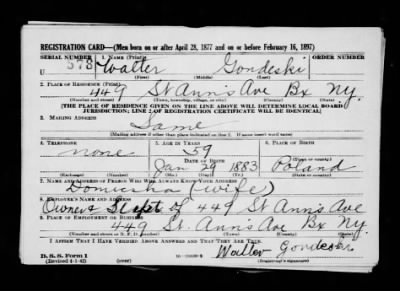 REGISTRATION CARD—(Men born on or after April 28, 1877 and on or before February 16, 1897)
SERIAL NUMBER 1. NAME (Print) ORDER NUMBER
U 573 Walter Gondeski
(First) (Middle) (Last)
2. PLACE OF RESIDENCE (Print)
449 St Ann's Ave Bx Ny.
(Number and street) (Town, township, village, or city) (County) (State)
[THE PLACE OF RESIDENCE GIVEN ON THE LINE ABOVE WILL DETERMINE LOCAL BOARD
JURISDICTION; LINE 2 OF REGISTRATION CERTIFICATE WILL BE IDENTICAL]
3. MAILING ADDRESS
Same
(Mailing address if other than place indicated on line 2. If same insert word same)
4. TELEPHONE 5. AGE IN YEARS 6. PLACE OF BIRTH
none 59
DATE OF BIRTH
Jan 29 1883 Poland
(Exchange) (Number) (Mo.) (Day) (Yr.) (State or country)
7. NAME AND ADDRESS OF PERSON WHO WILL ALWAYS KNOW YOUR ADDRESS
(wife)
8. EMPLOYER'S NAME AND ADDRESS
Owner of 449 St Ann's Ave
9. PLACE OF EMPLOYMENT OR BUSINESS
449 St. Ann's Ave Bx Ny.
(Number and street or R. F. D. number) (Town) (County) (State)
I AFFIRM THAT I HAVE VERIFIED ABOVE ANSWERS AND THAT THEY ARE TRUE.
D. S. S. Form 1
(Revised 4-1-42)
Walter Gondeski
(Registrant's signature)